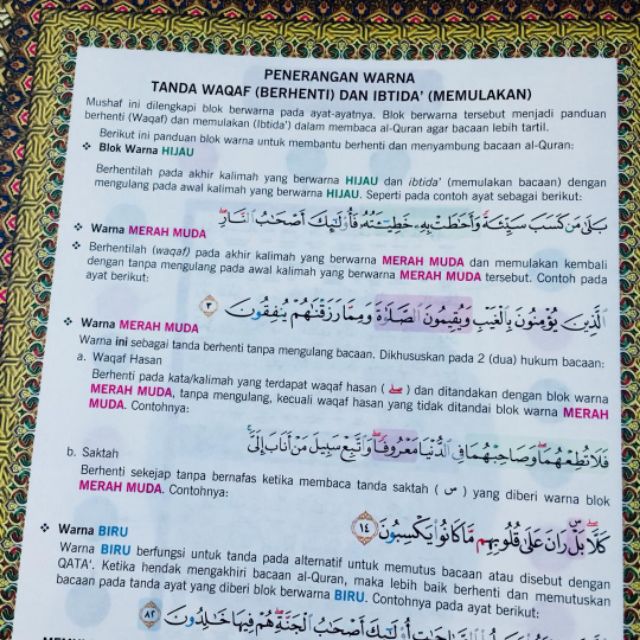 PENERANGAN WARNA
TANDA WAQAF (BERHENTI) DAN IBTIDA' (MEMULAKAN)
Mushaf ini dilengkapi blok berwarna pada ayat-ayatnya. Blok berwarna tersebut menjadi panduan
berhenti (Waqaf) dan memulakan (Ibtida') dalam membaca al-Quran agar bacaan lebih tartil.
Berikut ini panduan blok warna untuk membantu berhenti dan menyambung bacaan al-Quran:
❖ Blok Warna HIJAU
Berhentilah pada akhir kalimah yang berwarna HIJAU dan ibtida' (memulakan bacaan) dengan
mengulang pada awal kalimah yang berwarna HIJAU. Seperti pada contoh ayat sebagai berikut:
بَلَىٰ مَن كَسَبَ سَيِّئَةً وَأَحَٰطَتْ بِهِۦ خَطِيٓـَٔتُهُۥ فَأُو۟لَٰٓئِكَ أَصْحَٰبُ النَّارِ
❖ Warna MERAH MUDA
❖ Berhentilah (waqaf) pada akhir kalimah yang berwarna MERAH MUDA dan memulakan kembali
dengan tanpa mengulang pada awal kalimah yang berwarna MERAH MUDA tersebut. Contoh pada
ayat berikut:
الَّذِينَ يُؤْمِنُونَ بِالْغَيْبِ وَيُقِيمُونَ الصَّلَوٰةَ وَمِمَّا رَزَقْنَٰهُمْ يُنفِقُونَ ٣
❖ Warna MERAH MUDA
Warna ini sebagai tanda berhenti tanpa mengulang bacaan. Dikhususkan pada 2 (dua) hukum bacaan:
a. Waqaf Hasan
Berhenti pada kata/kalimah yang terdapat waqaf hasan ( صلے ) dan ditandakan dengan blok warna
MERAH MUDA, tanpa mengulang, kecuali waqaf hasan yang tidak ditandai blok warna MERAH
MUDA. Contohnya:
فَلَا تُطِعْهُمَا وَصَاحِبْهُمَا فِي الدُّنْيَا مَعْرُوفًا وَاتَّبِعْ سَبِيلَ مَنْ أَنَابَ إِلَيَّ
b. Saktah
Berhenti sekejap tanpa bernafas ketika membaca tanda saktah ( س ) yang diberi warna blok
MERAH MUDA. Contohnya:
كَلَّا بَلْ رَانَ عَلَىٰ قُلُوبِهِم مَّا كَانُوا۟ يَكْسِبُونَ ١٤
❖ Warna BIRU
Warna BIRU berfungsi untuk tanda pada alternatif untuk memutus bacaan atau disebut dengan
QATA'. Ketika hendak mengakhiri bacaan al-Quran, maka lebih baik berhenti dan memutuskan
bacaan pada tanda ayat yang diberi blok berwarna BIRU. Contohnya pada ayat berikut:
أُو۟لَٰٓئِكَ أَصْحَٰبُ الْجَنَّةِ هُمْ فِيهَا خَٰلِدُونَ ٨٢